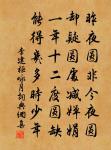 昨夜圓非今夜圓
却疑圓處減嬋娟
一年十二度圓缺
能得幾多時少年
李建樞咏月詞典網書